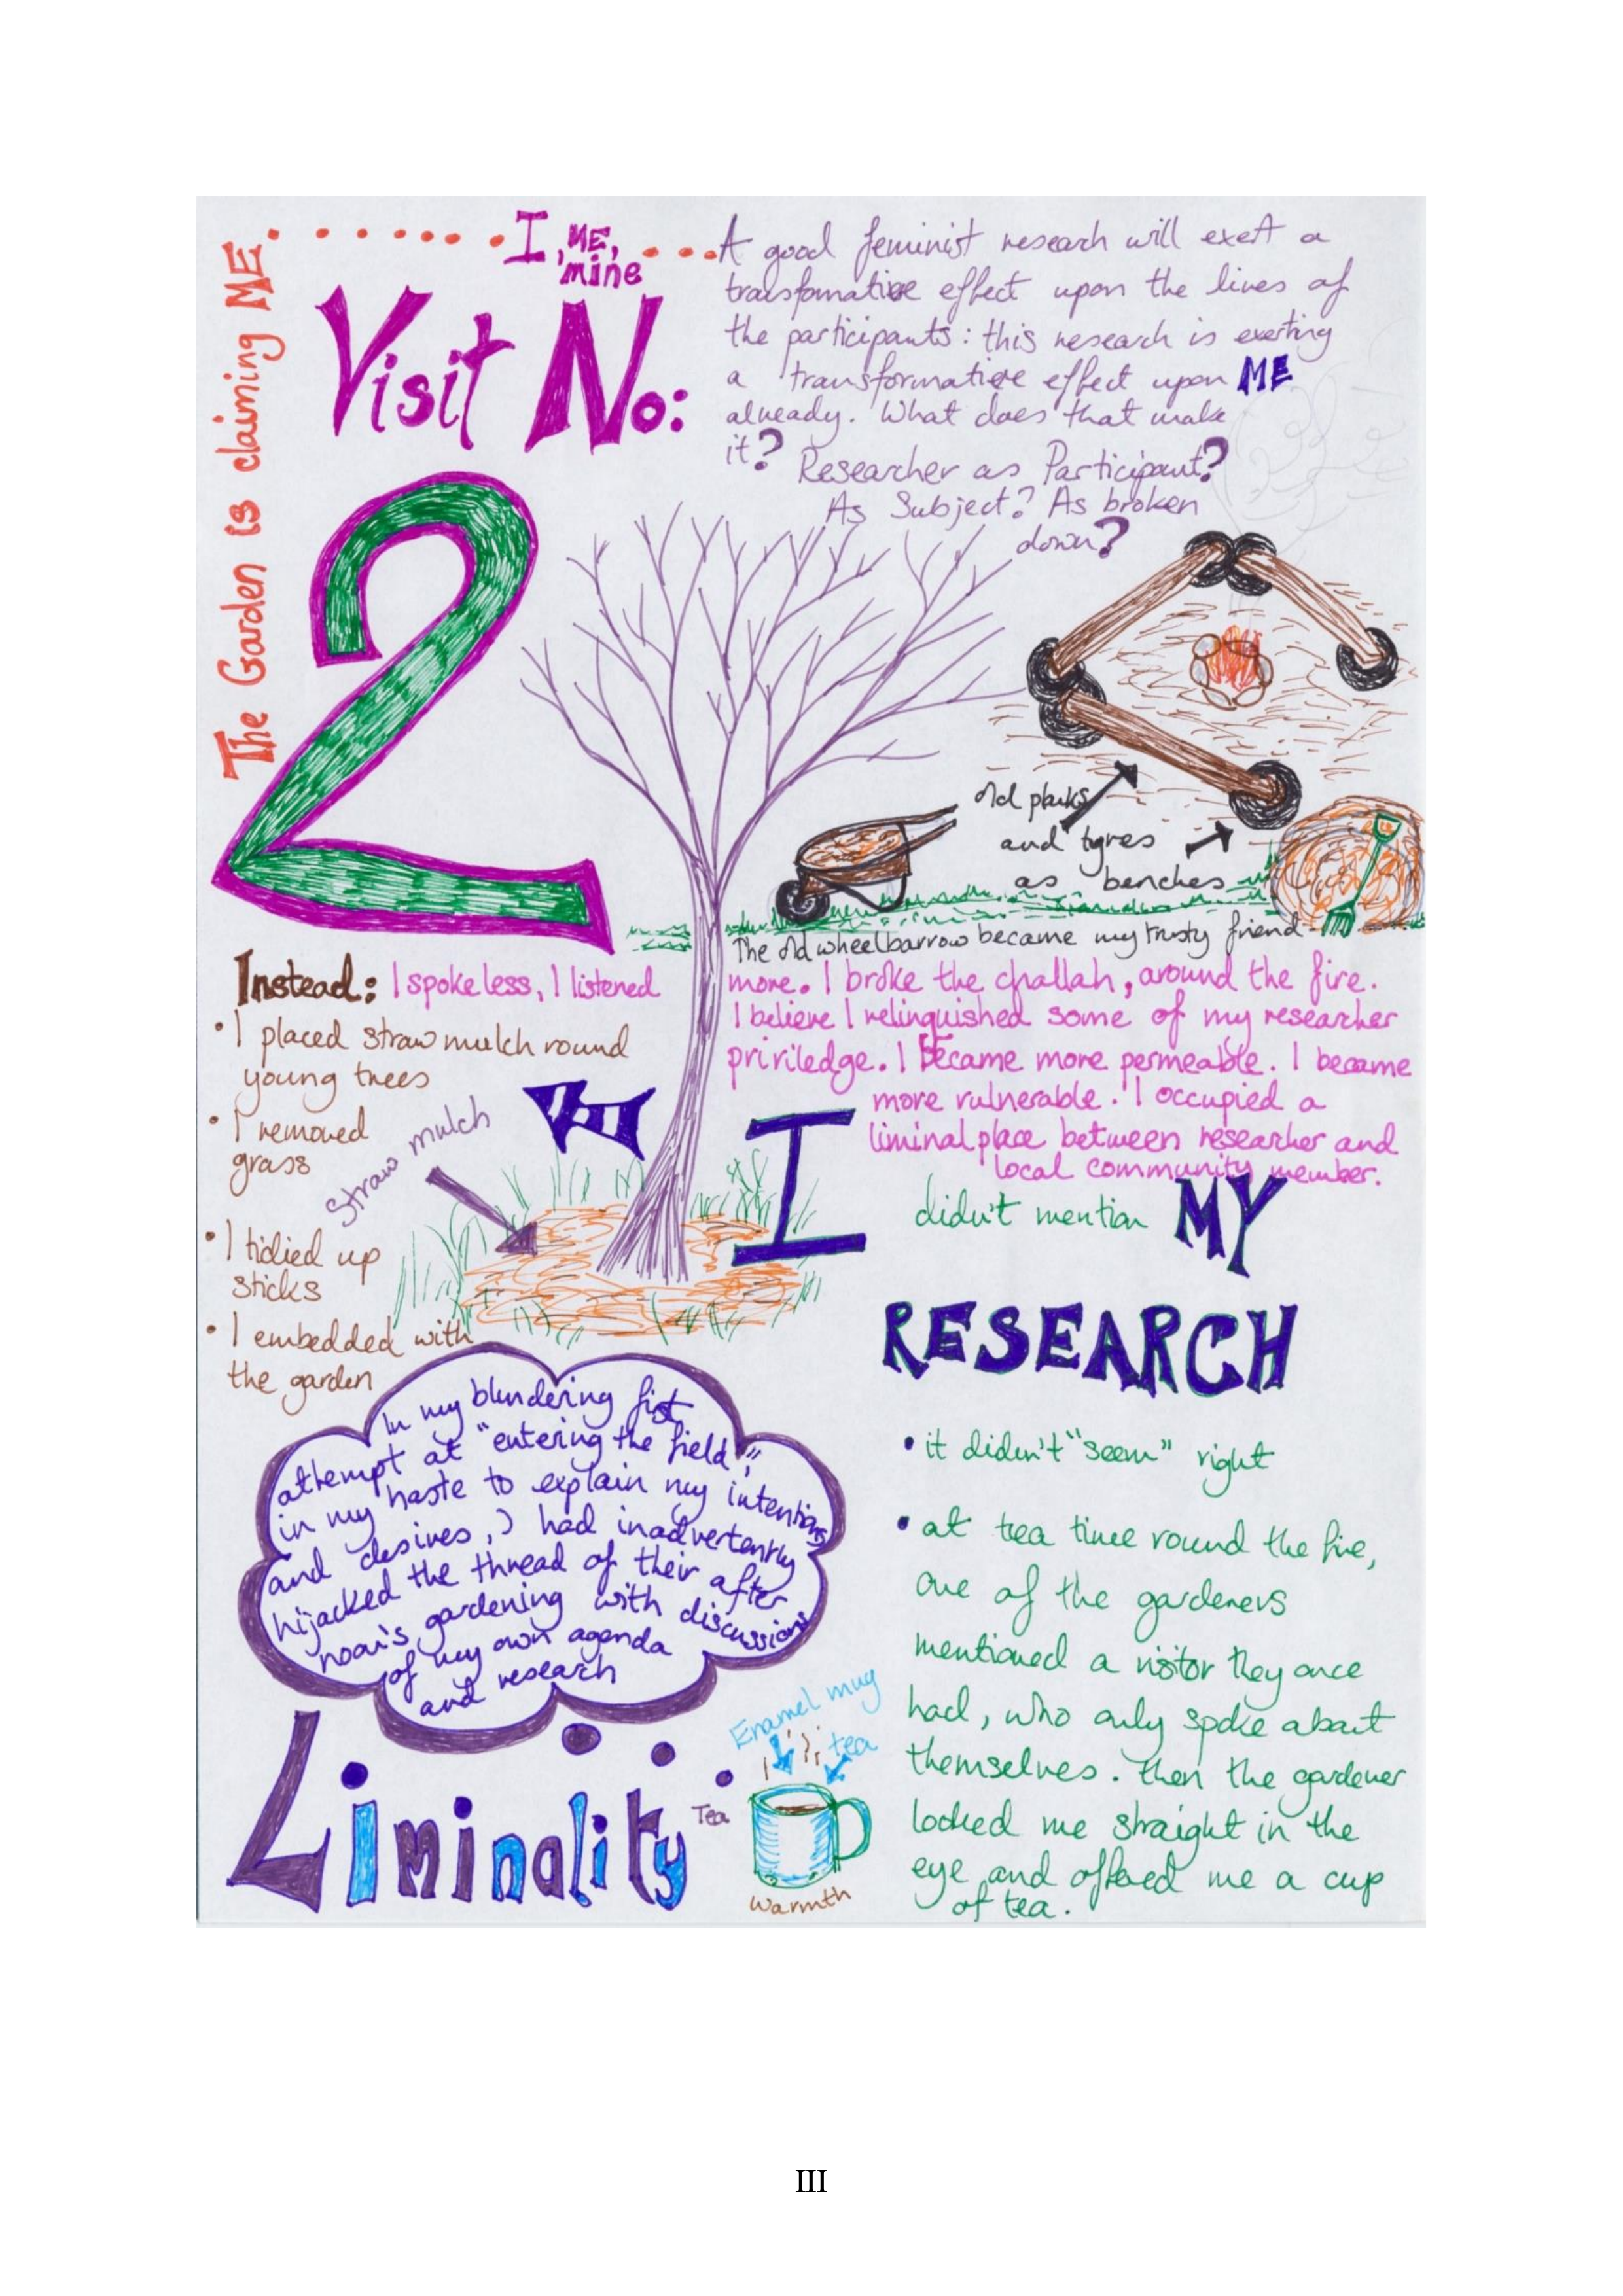 The Garden is claiming ME.
I, ME,
mine
Visit No:
2
A good feminist research will exert a
transformative effect upon the lives of
the participants: this research is exerting
a transformative effect upon ME
already. What does that make
it? Researcher as Participant?
As Subject? As broken
down?
old planks
and tyres
as benches
The old wheelbarrow became my trusty friend
Instead: I spoke less, I listened
more. I broke the challah, around the fire.
I believe I relinquished some of my researcher
priviledge. I became more permeable. I became
more vulnerable. I occupied a
liminal place between researcher and
local community member.
• I placed straw mulch round
young trees
• I removed
grass
• I tidied up
sticks
• I embedded with
the garden
straw mulch
I didn't mention MY
RESEARCH
• it didn't "seem" right
• at tea time round the fire,
one of the gardeners
mentioned a visitor they once
had, who only spoke about
themselves. Then the gardener
looked me straight in the
eye and offered me a cup
of tea.
In my blundering fist
attempt at "entering the field",
in my haste to explain my intentions
and desires, I had inadvertently
hijacked the thread of their after
noon's gardening with discussions
of my own agenda
and research
Liminality
Enamel mug
tea
Tea
Warmth
III